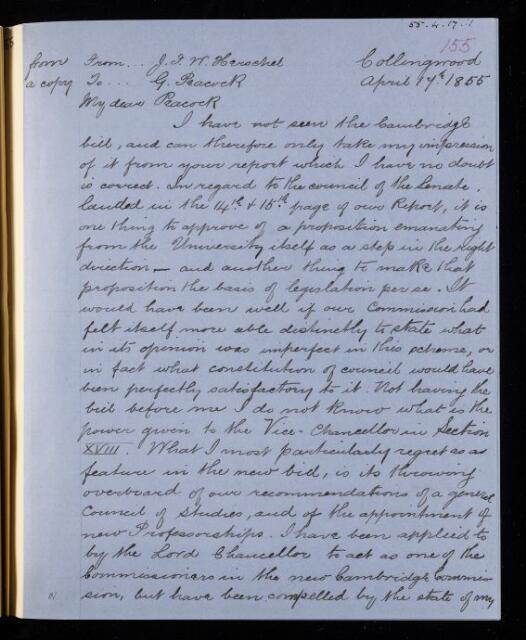 55-4-17-1
155
from From... J. F. W. Herschel Collingwood
a copy To... G. Peacock April 17th 1855
My dear Peacock
I have not seen the Cambridge
bill, and can therefore only take my impression
of it from your report which I have no doubt
is correct. In regard to the council of the Senate.
lauded in the 14th & 15th page of our Report, it is
one thing to approve of a proposition emanating
from the University itself as a step in the right
direction — and another thing to make that
proposition the basis of legislation per se. It
would have been well if our Commission had
felt itself more able distinctly to state what
in its opinion was imperfect in this scheme, or
in fact what constitution of council would have
been perfectly satisfactory to it. Not having the
bill before me I do not know what is the
power given to the Vice-Chancellor in Section
XVIII. What I most particularly regret as a
feature in the new bill, is its throwing
overboard of our recommendations of a general
Council of Studies, and of the appointment of
new Professorships. I have been applied to
by the Lord Chancellor to act as one of the
Commissioners in the new Cambridge Commis-
sion, but have been compelled by the state of my